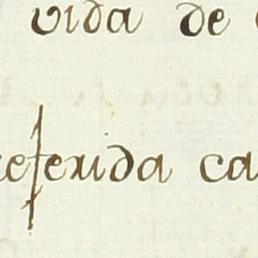 vida de
referida ca